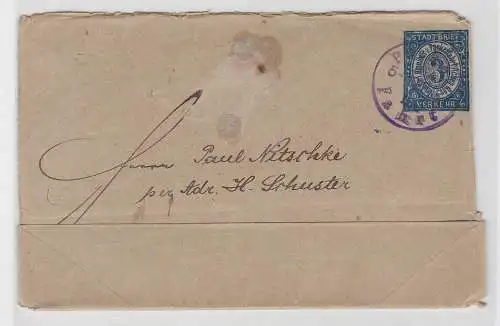 STADTBRIEF
3
VERKEHR
Herrn Paul Nitschke
per Adr. H. Schuster